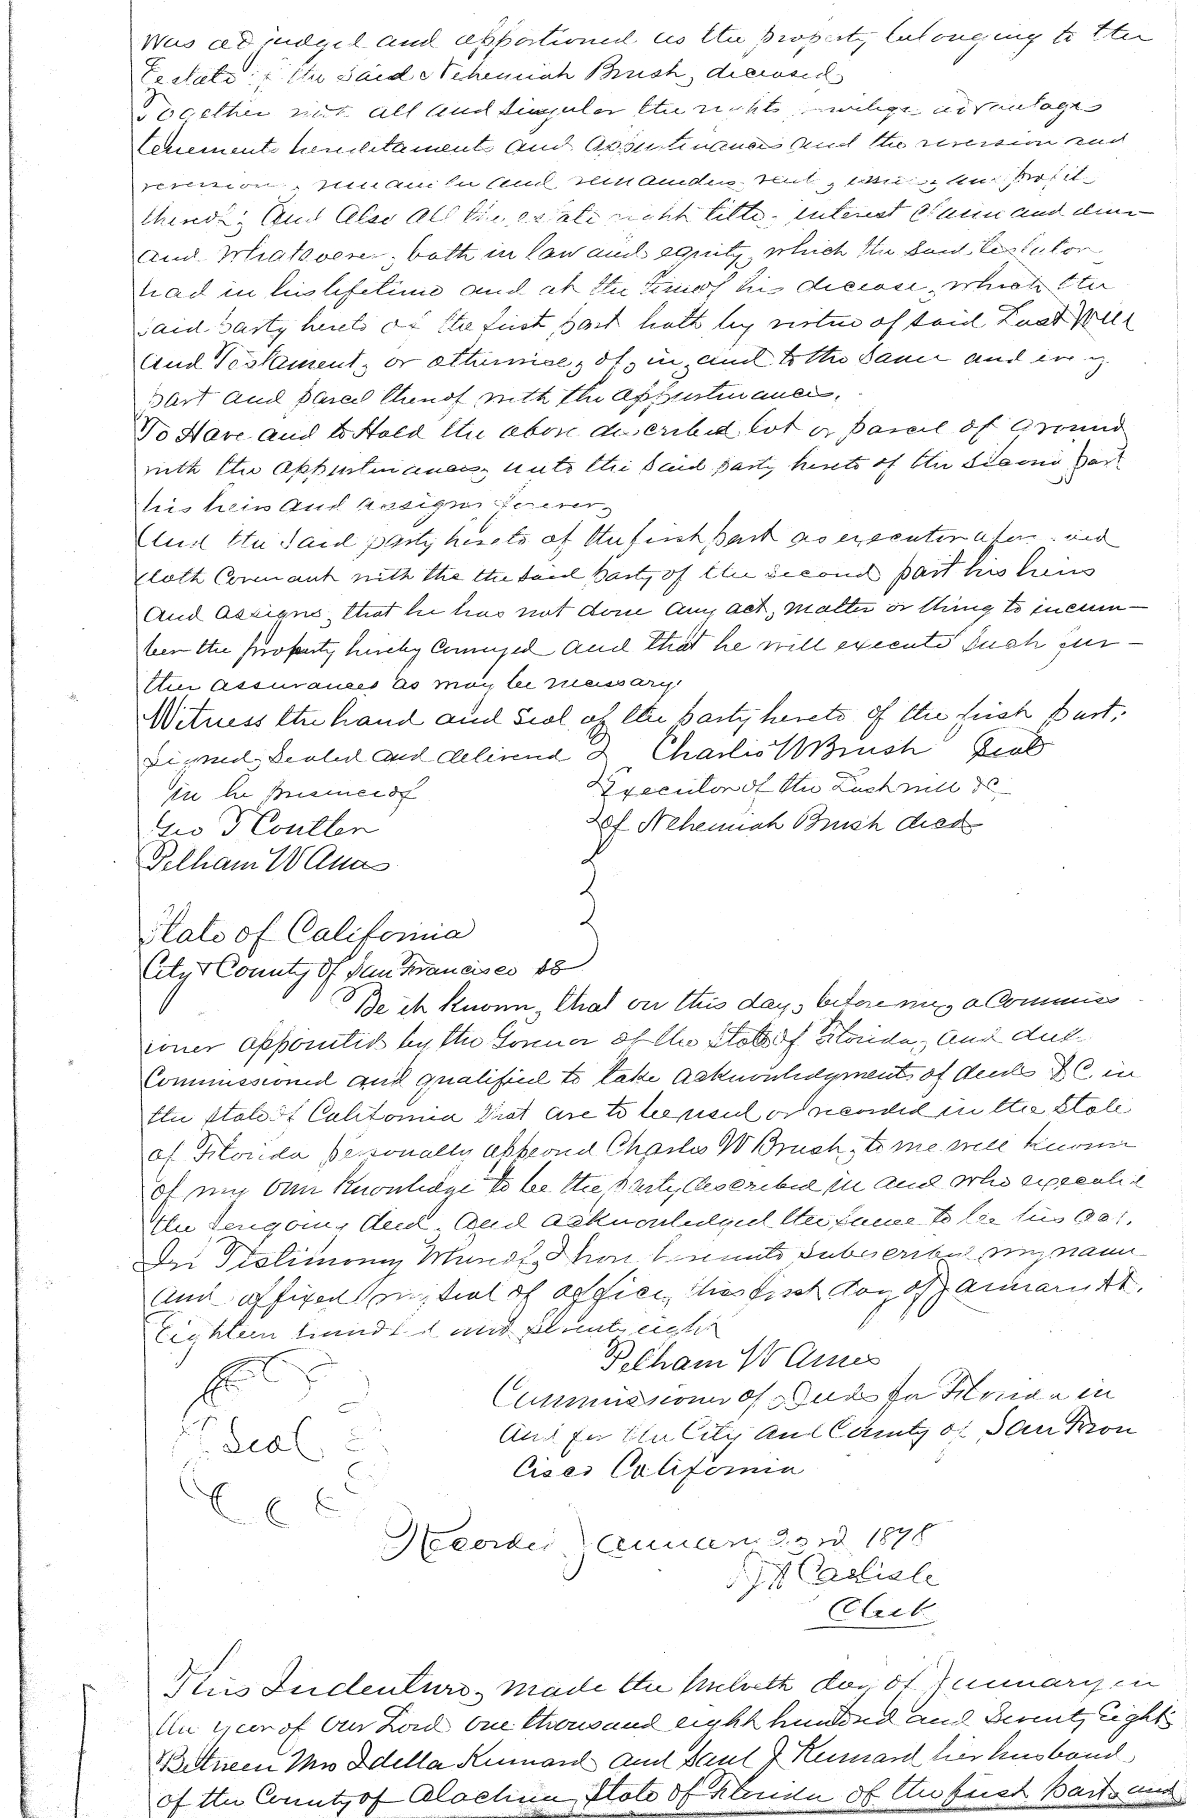 Was adjudged and apportioned as the property belonging to the
Estate of the said Nehemiah Brush, deceased
Together with all and singular the rights privileges advantages
tenements hereditaments and appurtenances and the reversion and
reversions, remainder and remainders rents, issues and profits
thereof; And Also all the estate right title, interest claim and dem-
and Whatsoever, both in law and equity, which the said testator
had in his lifetime and at the time of his decease, which the
said party hereto of the first part hath by virtue of said Last Will
And Testament, or otherwise, of, in, and to the same and every
part and parcel thereof with the appurtenances.
To Have and to Hold the above described lot or parcel of Ground
with the appurtenances, unto the said party hereto of the second part
his heirs and assigns forever,
And the said party hereto of the first part as executor aforesaid
doth Covenant with the the said party of the second part his heirs
And assigns, that he has not done any act, matter or thing to incum-
ber the property hereby Conveyed and that he will execute such fur-
ther assurances as may be necessary.
Witness the hand and seal of the party hereto of the first part.
Signed, Sealed and delivered } Charles W Brush Seal
in the presence of Executor of the Last will &c
Geo T Coulter of Nehemiah Brush decd
Pelham W Ames
State of California
City & County of San Francisco SS
Be it known, that on this day, before me, a Commiss
ioner appointed by the Governor of the State of Florida, and duly
Commissioned and qualified to take acknowledgments of deeds &C in
the State of California that are to be used or recorded in the State
of Florida personally appeared Charles W Brush, to me well known
of my own knowledge to be the party described in and who executed
the foregoing deed. And acknowledged the same to be his act.
In Testimony Whereof, I have hereunto subscribed my name
And affixed my seal of office, this first day of January A.D.
Eighteen hundred and seventy eight
Pelham W Ames
Commissioner of Deeds for Florida in
And for the City and County of San Fran
Cisco California
Seal
Recorded January 23rd 1878
Carlisle
Clerk
This Indenture, made the twelveth day of January in
the year of Our Lord one thousand eight hundred and Seventy Eight
Between Mrs Idella Kennard and Saul J Kennard her husband,
of the County of Alachua State of Florida of the first Part and